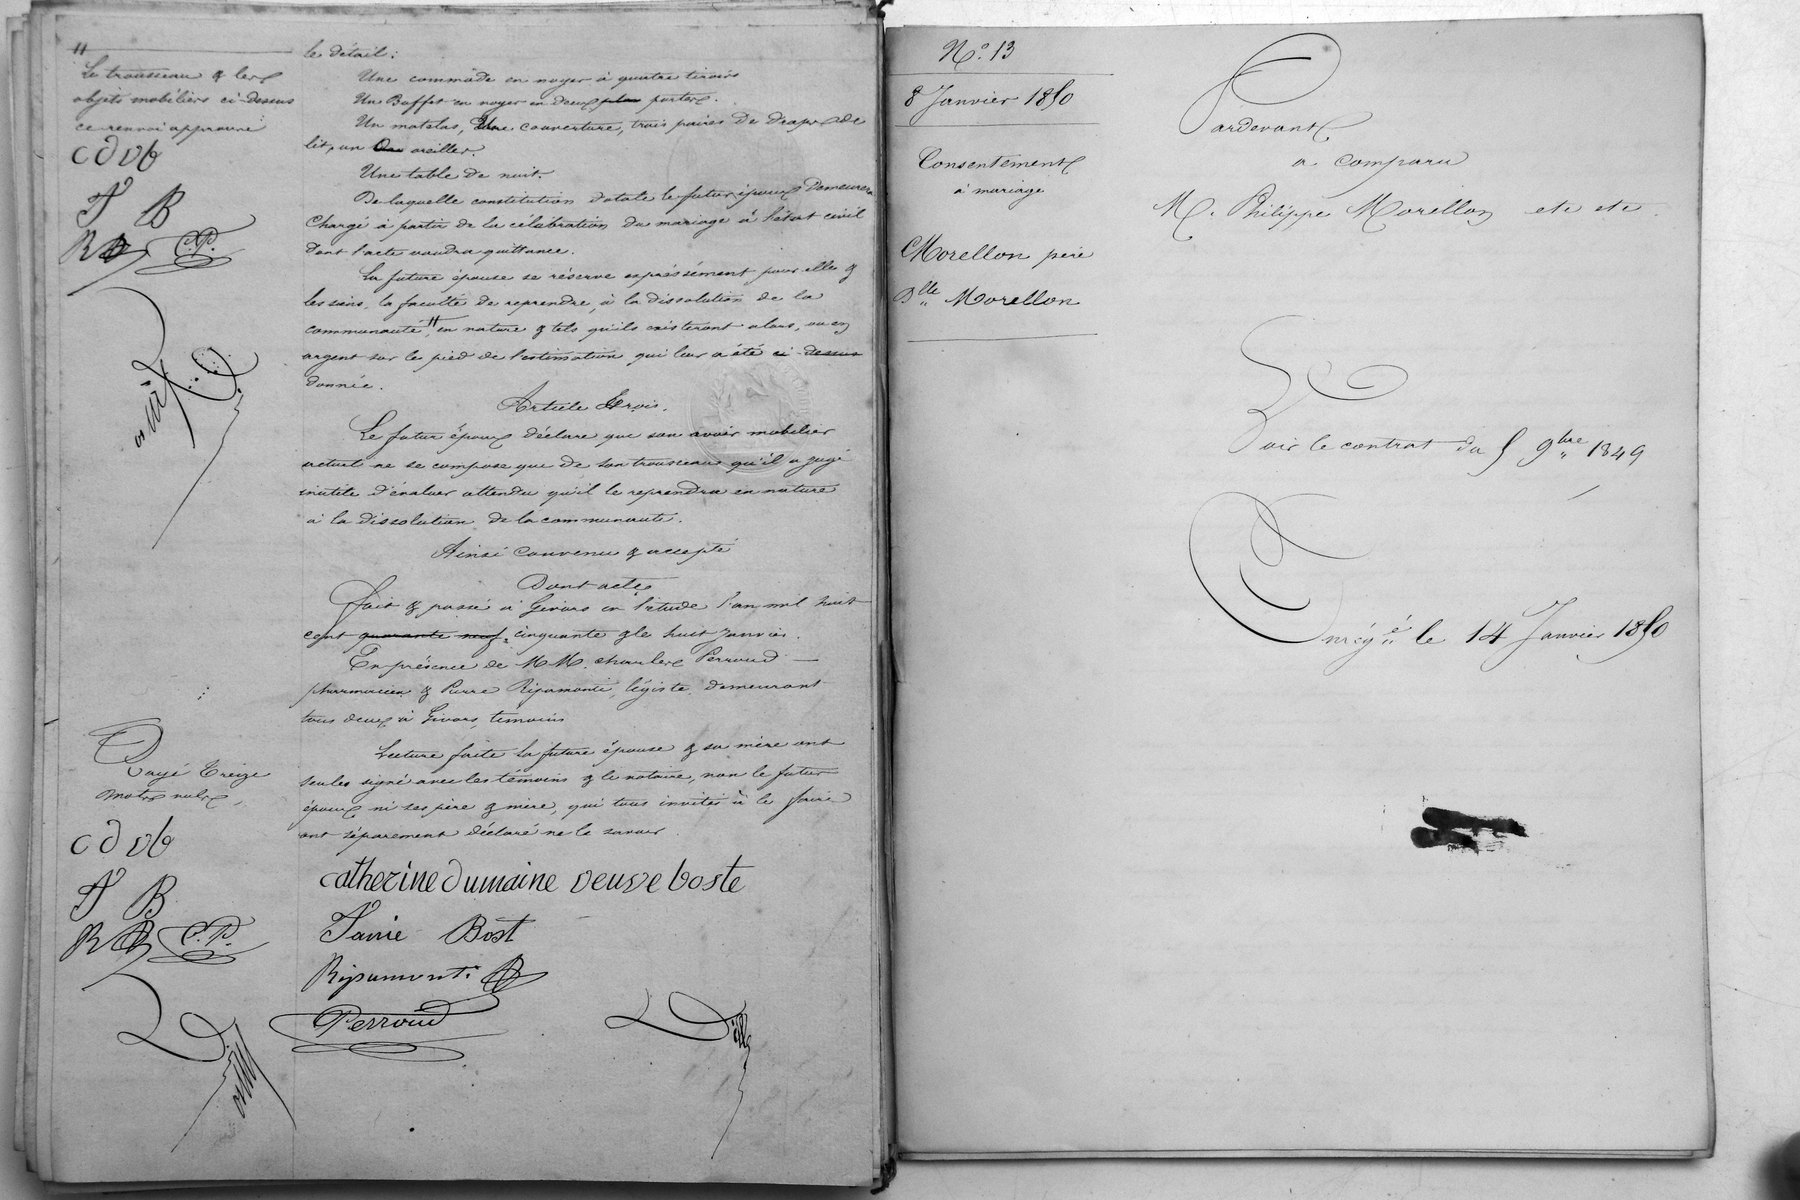 "
Le trousseau & les
objets mobiliers ci-dessus
ce renvoi approuvé
cdvb
F B
RB C.P.
le détail:
Une commode en noyer à quatre tiroirs
Un Buffet en noyer en deux plan portes.
Un matelas, Une couverture, trois paires de draps de
lit, un oreiller.
Une table de nuit.
De laquelle constitution dotale le futur époux demeurera
Chargé à partir de la célébration du mariage à l'état civil
dont l'acte vaudra quittance.
La future épouse se réserve expressément pour elle &
les siens, la faculté de reprendre, à la dissolution de la
communauté, " en nature & tels qu'ils existeront alors, ou en
argent sur le pied de l'estimation qui leur a été ci-dessus
donnée.
Article trois.
Le futur époux déclare que son avoir mobilier
actuel ne se compose que de son trousseau qu'il a jugé
inutile d'évaluer attendu qu'il le reprendra en nature
à la dissolution de la communauté.
Ainsi convenu & accepté
Dont acte
Fait & passé à Givors en l'étude l'an mil huit
cent quarante neuf. cinquante & le huit Janvier.
En présence de MM. Charles Perroud
pharmacien & Pierre Ripamonti, légiste, demeurant
tous deux à Givors, témoins
Lecture faite la future épouse & sa mère ont
seules signé avec les témoins & le notaire, non le futur
époux ni ses père & mère, qui tous invités à le faire
ont séparément déclaré ne le savoir.
Rayé treize
mots nuls,
cdvb
F B
RB C.P.
catherine dumaine veuve boste
Fanie Bost
Ripamonti
Perroud
N.° 13
8 Janvier 1850
Consentement
à mariage
Morellon père
Dlle Morellon
Pardevant
a comparu
M. Philippe Morellon etc etc.
Voir le contrat du 5 9bre 1849
Enrégé le 14 Janvier 1850